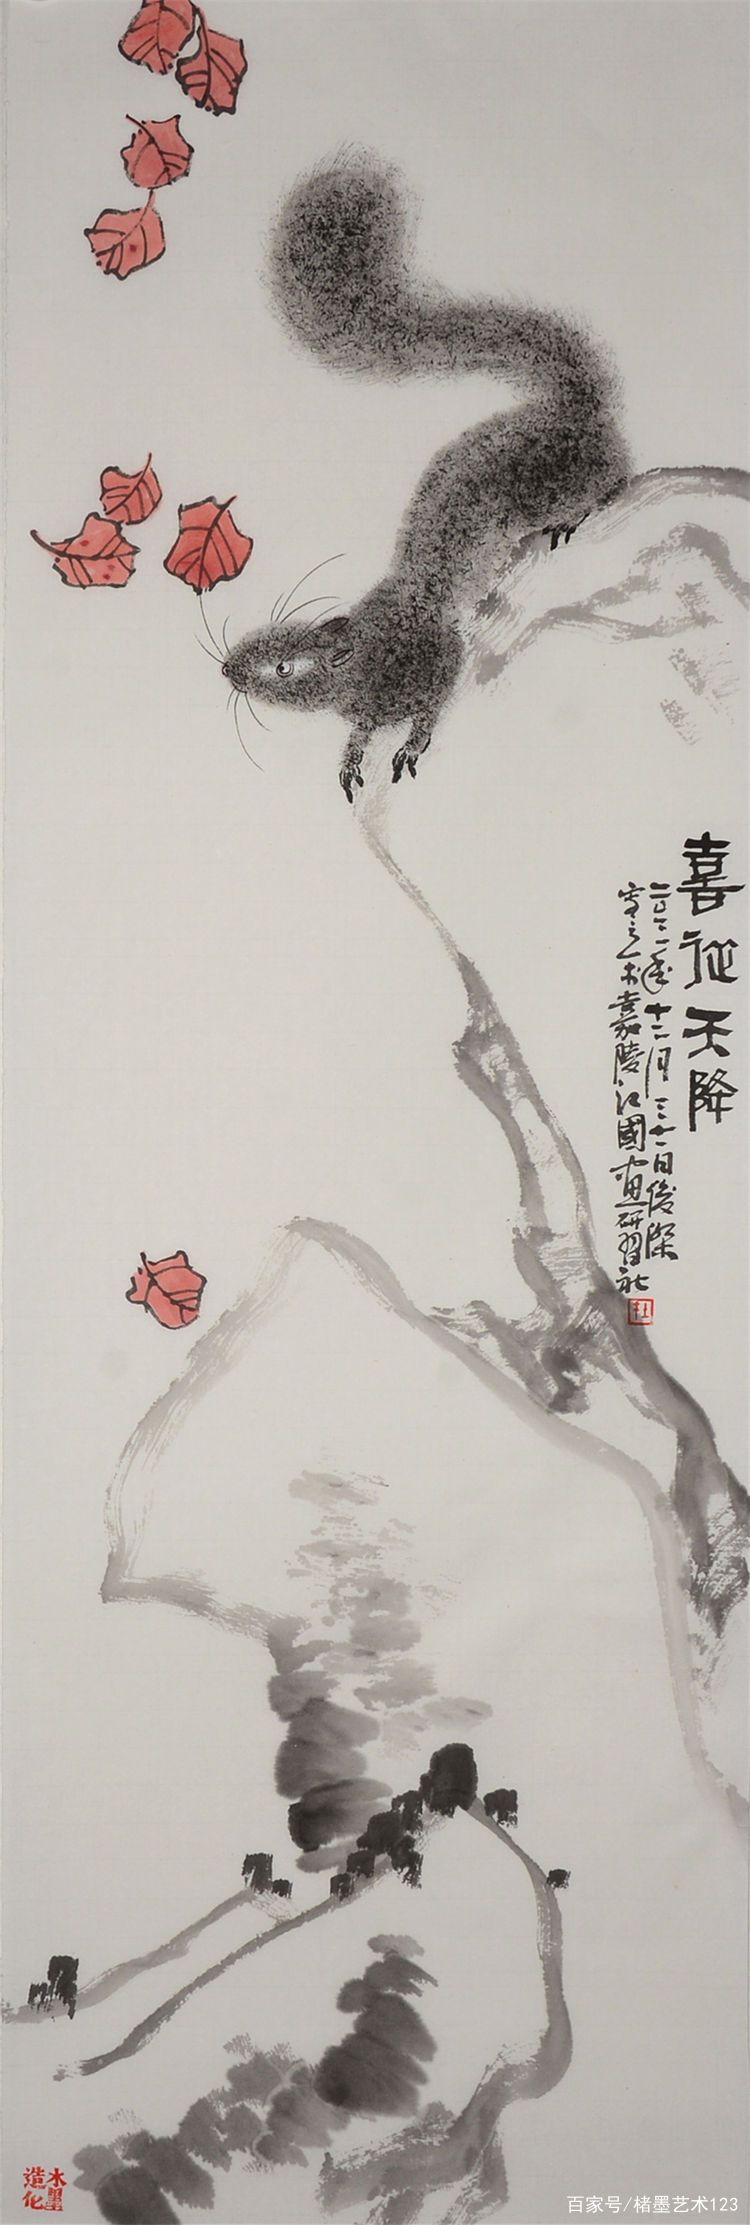 喜從天降
二〇二一年十二月三十一日俊傑
寫之於嘉陵江國畫研習社
杜
水墨
造化
百家号/楮墨艺术123